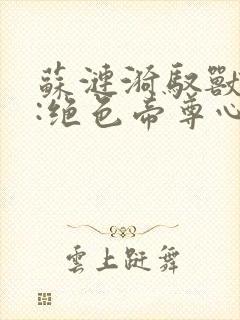 蘇漣漪馭獸
:絕色帝尊心
雲上跹舞